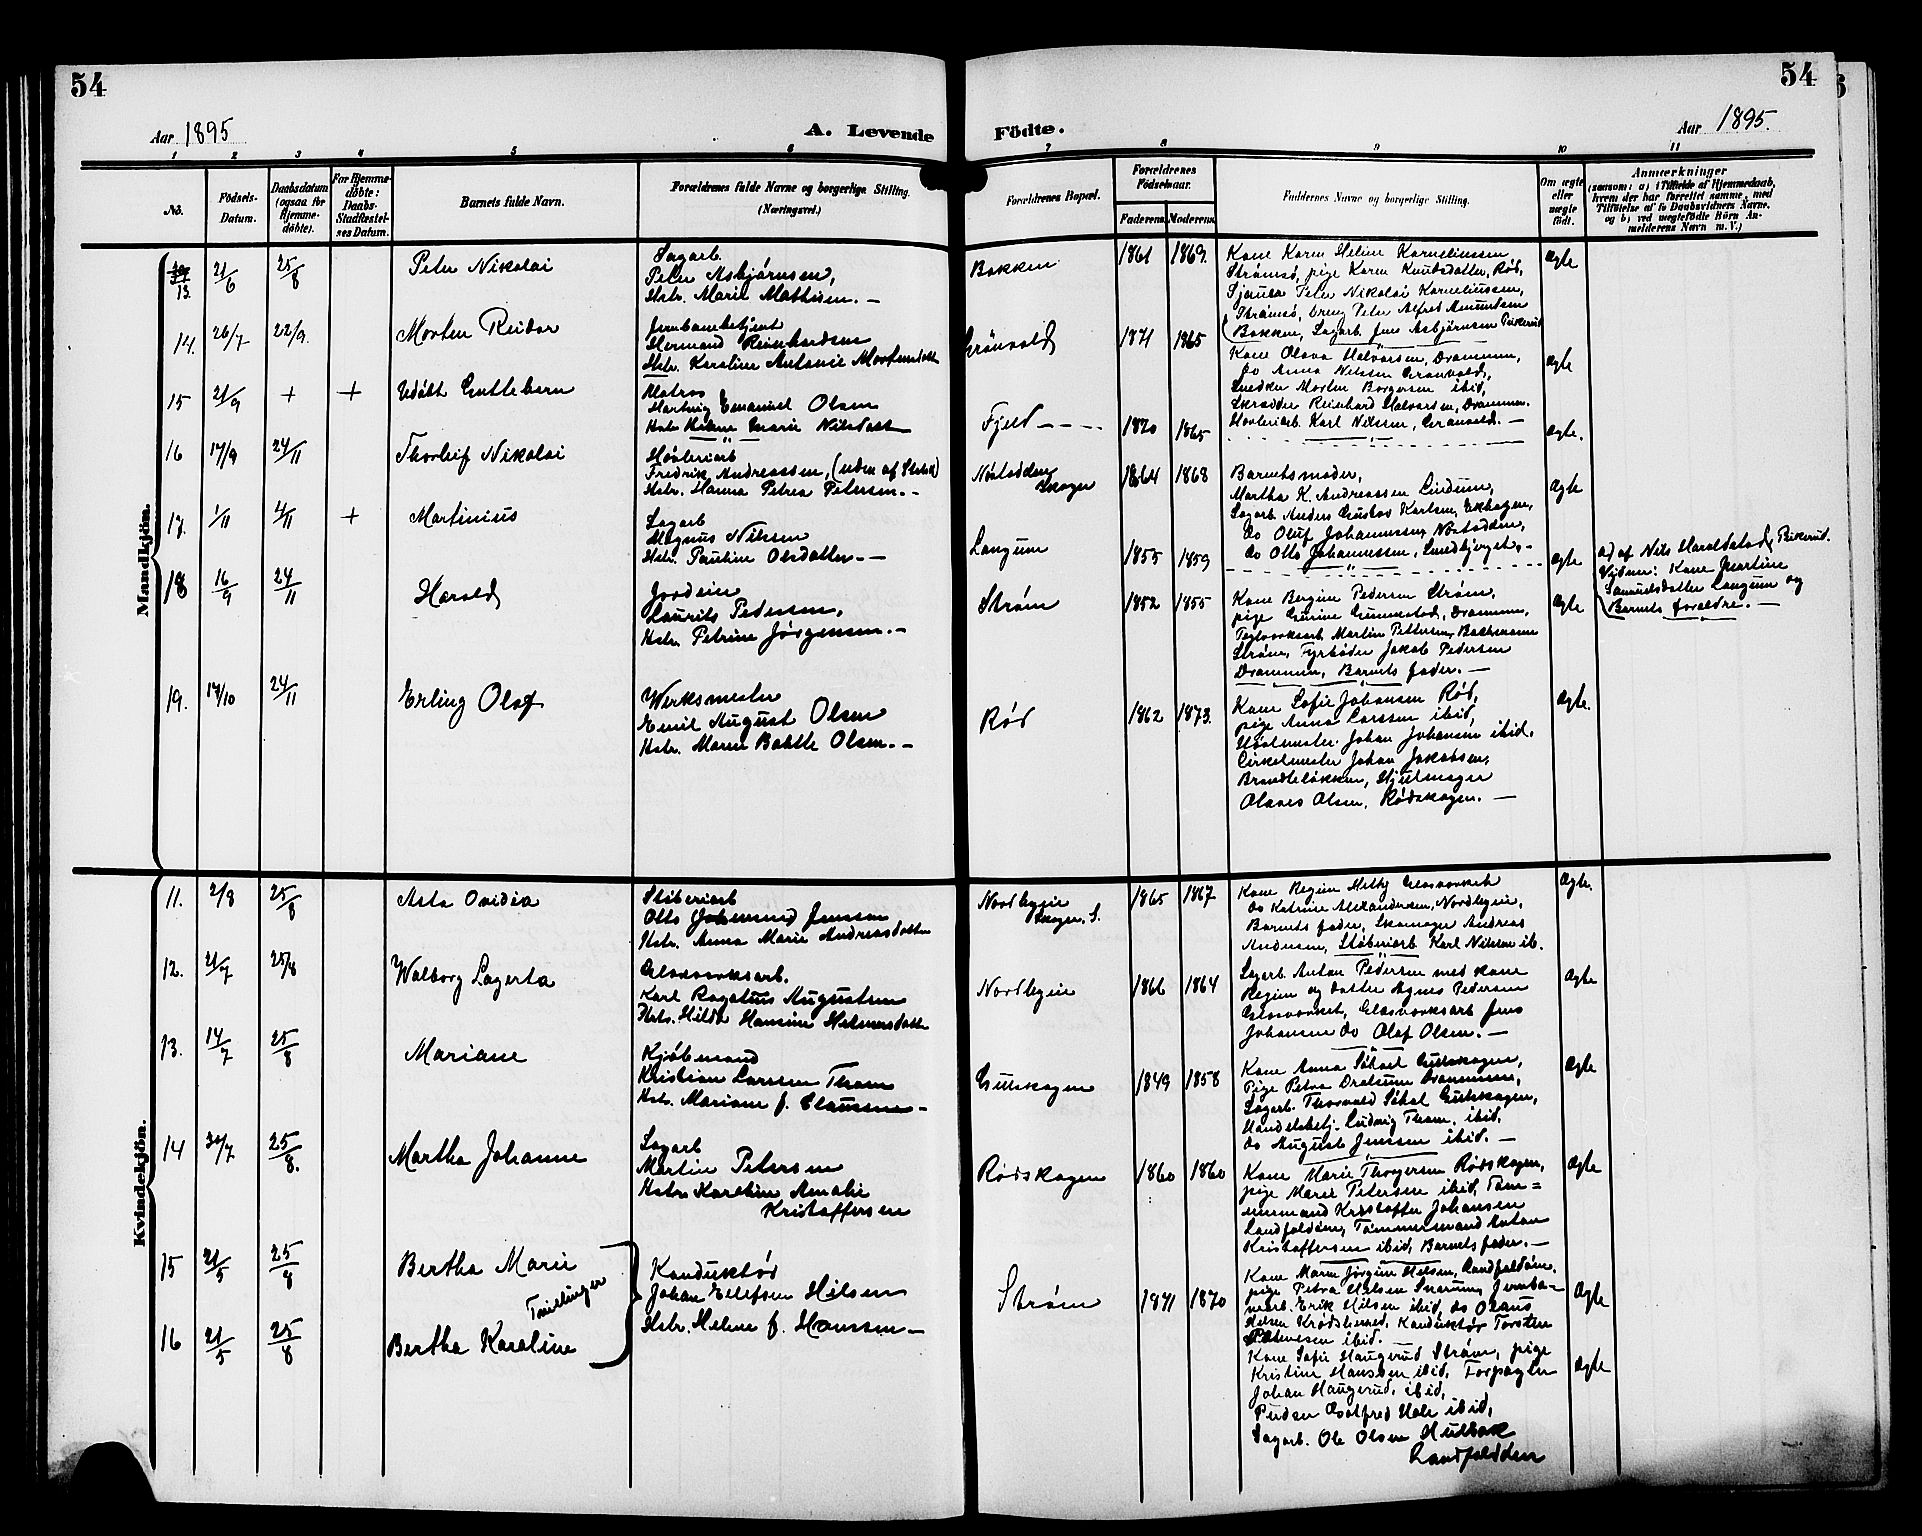 54
54
Aar 1895
A. Levende
Födte.
Aar 1895.
1 2 3 4 5 6 7 8 9 10 11
No.
Födsels-
Datum.
Daabsdatum
(ogsaa for
Hjemme-
döbte).
For Hjemme-
döbte:
Daabs-
Stadfæstel-
ses Datum.
Barnets fulde Navn.
Forældrenes fulde Navne og borgerlige Stilling.
(Næringsvei.)
Forældrenes Bopæl.
Forældrenes
Födselsaar.
Faderens.
Moderens.
Faddernes Navne og borgerlige Stilling.
Om ægte
eller
uægte
född.
Anmærkninger
(saasom: a) i Tilfælde af Hjemmedaab,
hvem der har forrettet samme, med
Tilföielse af to Daabsvidners Navne,
og b) ved uægtefödte Börn An-
melderens Navn m. V.)
Mandkjön.
13. 21/6 25/8
Peter Nikolai
Sagarb.
Peter Asbjørnsen,
Hstr. Marie Mathisen. —
Bakken
1861 1869.
Kone Karen Helene Korneliussen
Strømsø, pige Karen Knudsdatter, Rød,
Sjauer Peter Nikolai Korneliussen,
Strømsø, dreng Peter Alfred Amundsen
Bakken, Sagarb. Jens Asbjørnsen Pikerud
Ægte
14. 26/7 22/9.
Morten Reidar
Jernbanebetjent
Hermand Reinhardsen
Hstr. Karoline Antonie Mortensdatt
Grönvold
1871 1865
Kone Olava Halvorsen, Drammen,
do Anna Nilssen Grønvold,
Snedker Morten Borgersen ibid,
Skrædder Reinhard Halvorsen, Drammen.
Høvleriarb. Karl Nilssen, Grønvold. —
Ægte
15 21/9 + +
Udøbt Guttebarn
Matros
Hartvig Emanuel Olsen
Hstr Helene Marie Nilsdatt
Fjeld - - - -
1870 1865
Ægte.
16 17/9 24/11
Thorleif Nikolai
Høvleriarb
Fredrik Andreassen, (uden af Statsk)
Hstr. Hanna Petrea Petersen. -
Nøstodden
skogen
1864 1868
Barnetsmoder,
Martha K. Andreassen Lindum,
Sagarb. Anders Gustav Karlsen, Ekhagen,
do Oluf Johannessen, Nøstodden,
do Otto Johannessen, Smedbjerget. -
Ægte
17. 1/11 4/11 +
Martinius
Sagarb
Magnus Nilsen
Hstr. Pauline Olsdatter. —
Langum
1855 1859
Ægte
a) af Nils Haraldstad, Pikerud.
Vidner: Kone Martine
Samuelsdatter Langum og
Barnets forældre. —
18 16/9 24/11
Harald
Jordeier
Laurits Pedersen,
Hstr. Petrine Jørgensen. —
Strøm
1852 1855
Kone Bergine Pedersen Strøm,
pige Gurine Gunnestad, Drammen,
Teglværksarb. Martin Pettersen, Bachemarn
Strøm, Fyrbøder Jakob Pedersen
Drammen, Barnets fader. —
Ægte
19. 17/10 24/11
Erling Olaf
Werksmester
Emil August Olsen
Hstr. Maren Bolette Olsen. —
Rød
1862 1873.
Kone Sofie Johansen Rød,
pige Anna Larssen ibid,
Høvlmester Johan Johansen ibid.
Cirkelmester Johan Jakobsen,
Brandtsløkken, Hjulmager
Olaves Olsen, Rødskogen. —
Ægte.
Kvindekjön.
11. 2/8 25/8
Asta Ovidia
Støberiarb
Otto Johannes Jenssen
Hstr. Anna Marie Andreasdatter
Nordbyeie
skogen. S.
1865 1867
Kone Regine Melby Glasværket
do Katrine Alexandersen, Nordbyeie,
Barnets fader, Skomager Andreas
Andersen, Støberiarb Karl Nilssen ib.
Ægte.
12. 21/7 25/8
Walborg Lagerta
Glasværksarb.
Karl Ragatius Augustsen
Hstr. Hilda Hansine Helmersdatt
Nordbyeie
1866 1864
Sagarb. Anton Pedersen med kone
Regine og datter Agnes Pedersen
Glasværket, Glasværksarb Jens
Johansen do Olaf Olsen. —
Ægte
13. 14/7 25/8
Mariane
Kjøbmand
Kristian Larssen Thom
Hstr. Mariane f. Claussen —
Gulskogen
1849 1858
Kone Anna Søhol Gulskogen,
Pige Petra Drolsum Drammen,
Sagarb. Thorvald Søhol Gulskogen,
Handelsbetj. Ludvig Thom, ibid,
do August Jenssen ibid. —
Ægte
14 30/7 25/8.
Martha Johanne
Sagarb
Martin Petersen
Hstr Karoline Amalie
Kristoffersen
Rødskogen
1860 1860
Kone Marie Thorgersen Rødskogen,
pige Marie Petersen ibid, Tøm=
mermand Kristoffer Johansen
Landfaldøen, Tømmermand Anton
Kristoffersen ibid, Barnets fader. —
Ægte
15 21/5 25/8
Bertha Marie
Tvillinger
Konduktør
Johan Ellefsen Hilsen
Hstr. Helene f. Hanssen —
Strøm
1871 1870
Kone Maren Jørgine Hilsen, Landfaldøen,
pige Petra Hilsen Snarum, Jernba-
nearb. Erik Hilsen ibid, do Olaus
Hilsen Krødsherred, Konduktør Torsten
Pettersen ibid. —
Ægte
16 21/5 25/8
Bertha Karoline
Kone Sofie Haugerud Strøm, pige
Kristine Hanssen ibid, Forpagter
Johan Haugerud, ibid,
Pudser Gotfred Hole ibid,
Sagarb. Ole Olsen Hulbak
Landfaldøen
Ægte